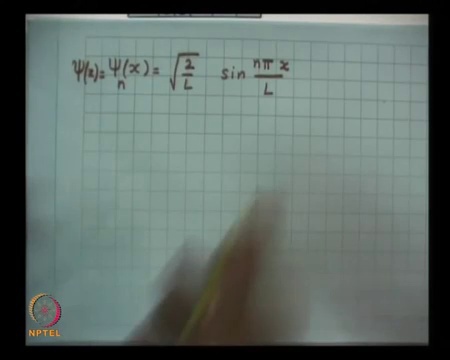 ψ(x) = ψn(x) = √(2/L) sin nπx/L
NPTEL